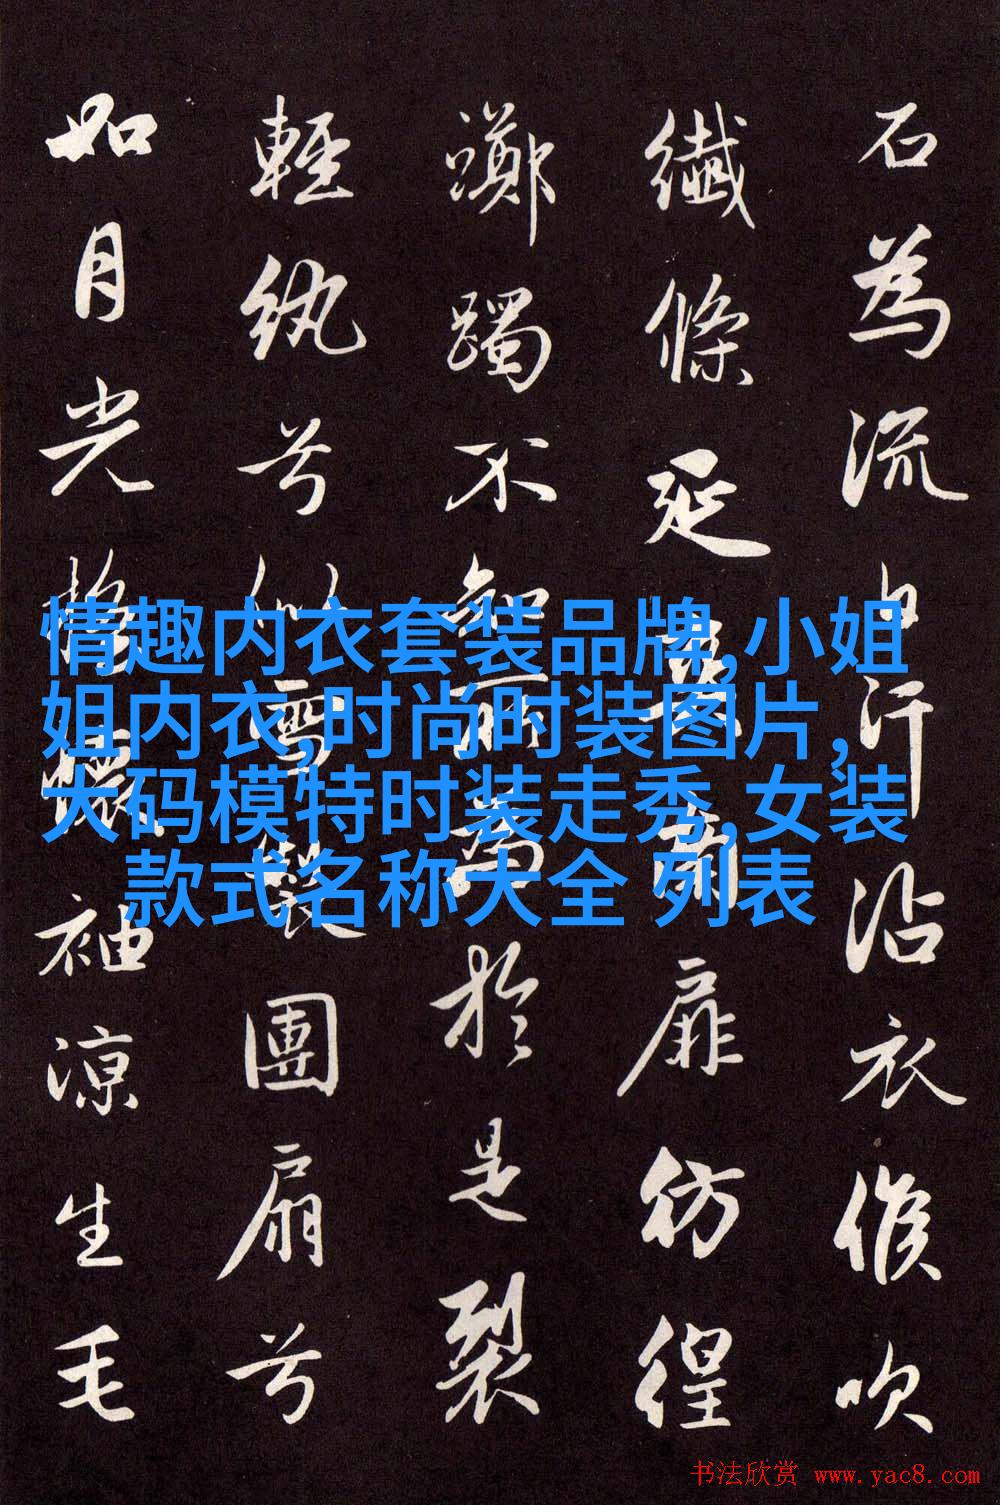 石為流汗沾衣候吹
纖條延扉彷徨
躅不知所為於是裂
輕紈兮似雪製團扇兮
如月光搖懷袖涼生毛
情趣内衣套装品牌,小姐
姐内衣,时尚时装图片,
大码模特时装走秀,女装
款式名称大全 列表
书法欣赏 www.yac8.com